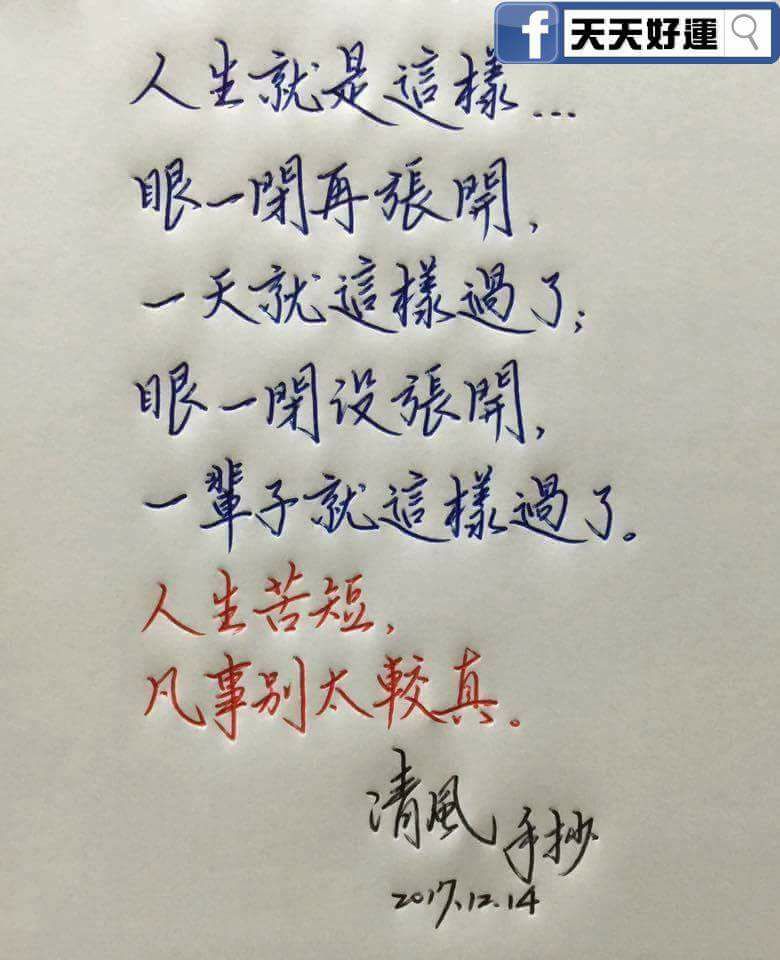 天天好運
人生就是這樣...
眼一閉再張開，
一天就這樣過了；
眼一閉没張開，
一輩子就這樣過了。
人生苦短，
凡事別太較真。
清風手抄
2017.12.14